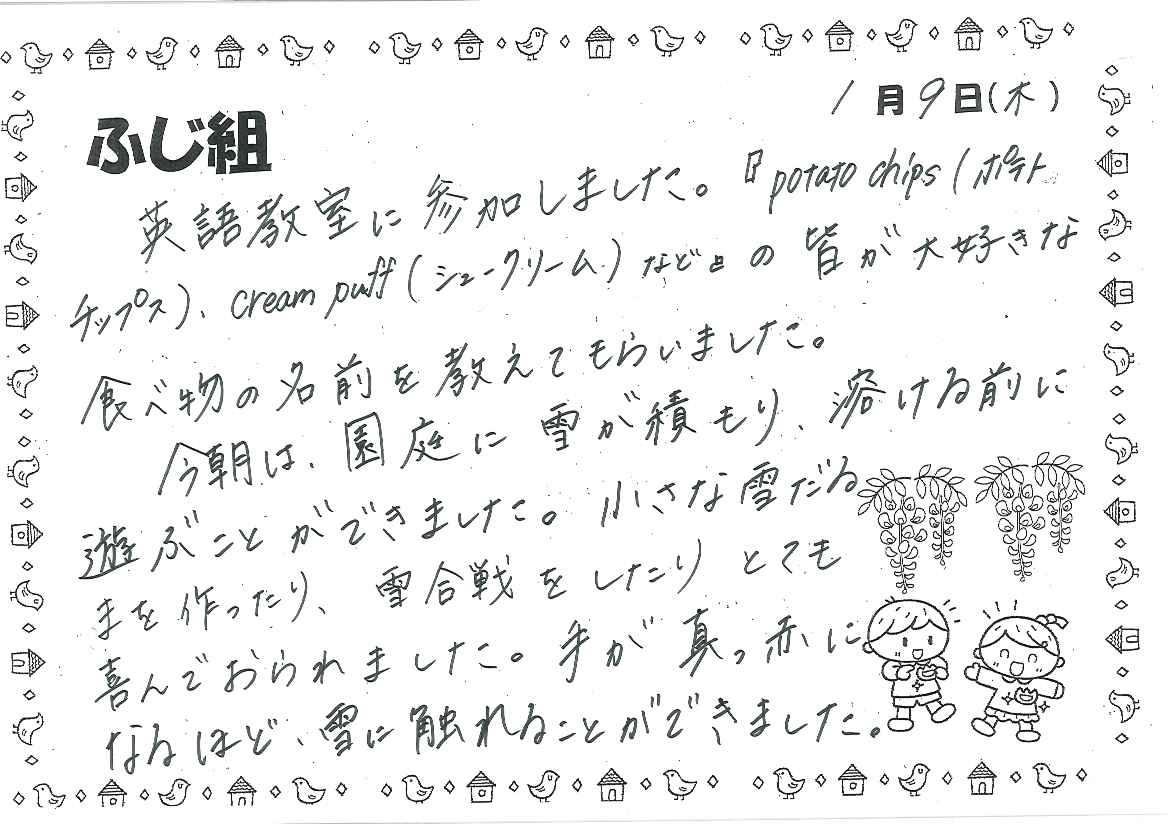 1月9日(木)
ふじ組
英語教室に参加しました。『potato chips (ポテト
チップス)、cream puff (シュークリーム)などの皆が大好きな
食べ物の名前を教えてもらいました。
今朝は、園庭に雪が積もり、溶ける前に
遊ぶことができました。小さな雪だる
まを作ったり、雪合戦をしたりとても
喜んでおられました。手が真っ赤に
なるほど、雪に触れることができました。